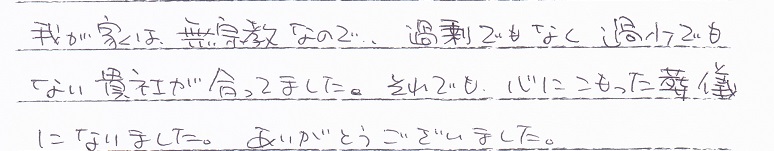 我が家は、無宗教なので、過剰でもなく過小でも
ない貴社が合ってました。それでも、心にこもった葬儀
になりました。ありがとうございました。